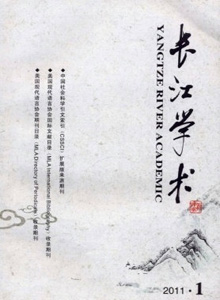 长江学术
YANGTZE RIVER ACADEMIC
◆中国社会科学引文索引(CSSCI)扩展版来源期刊
◆美国现代语言协会国际文献目录(MLA International Bibliography)收录期刊
◆美国现代语言协会期刊目录(MLA Directory of Periodicals)收录期刊
2011·1